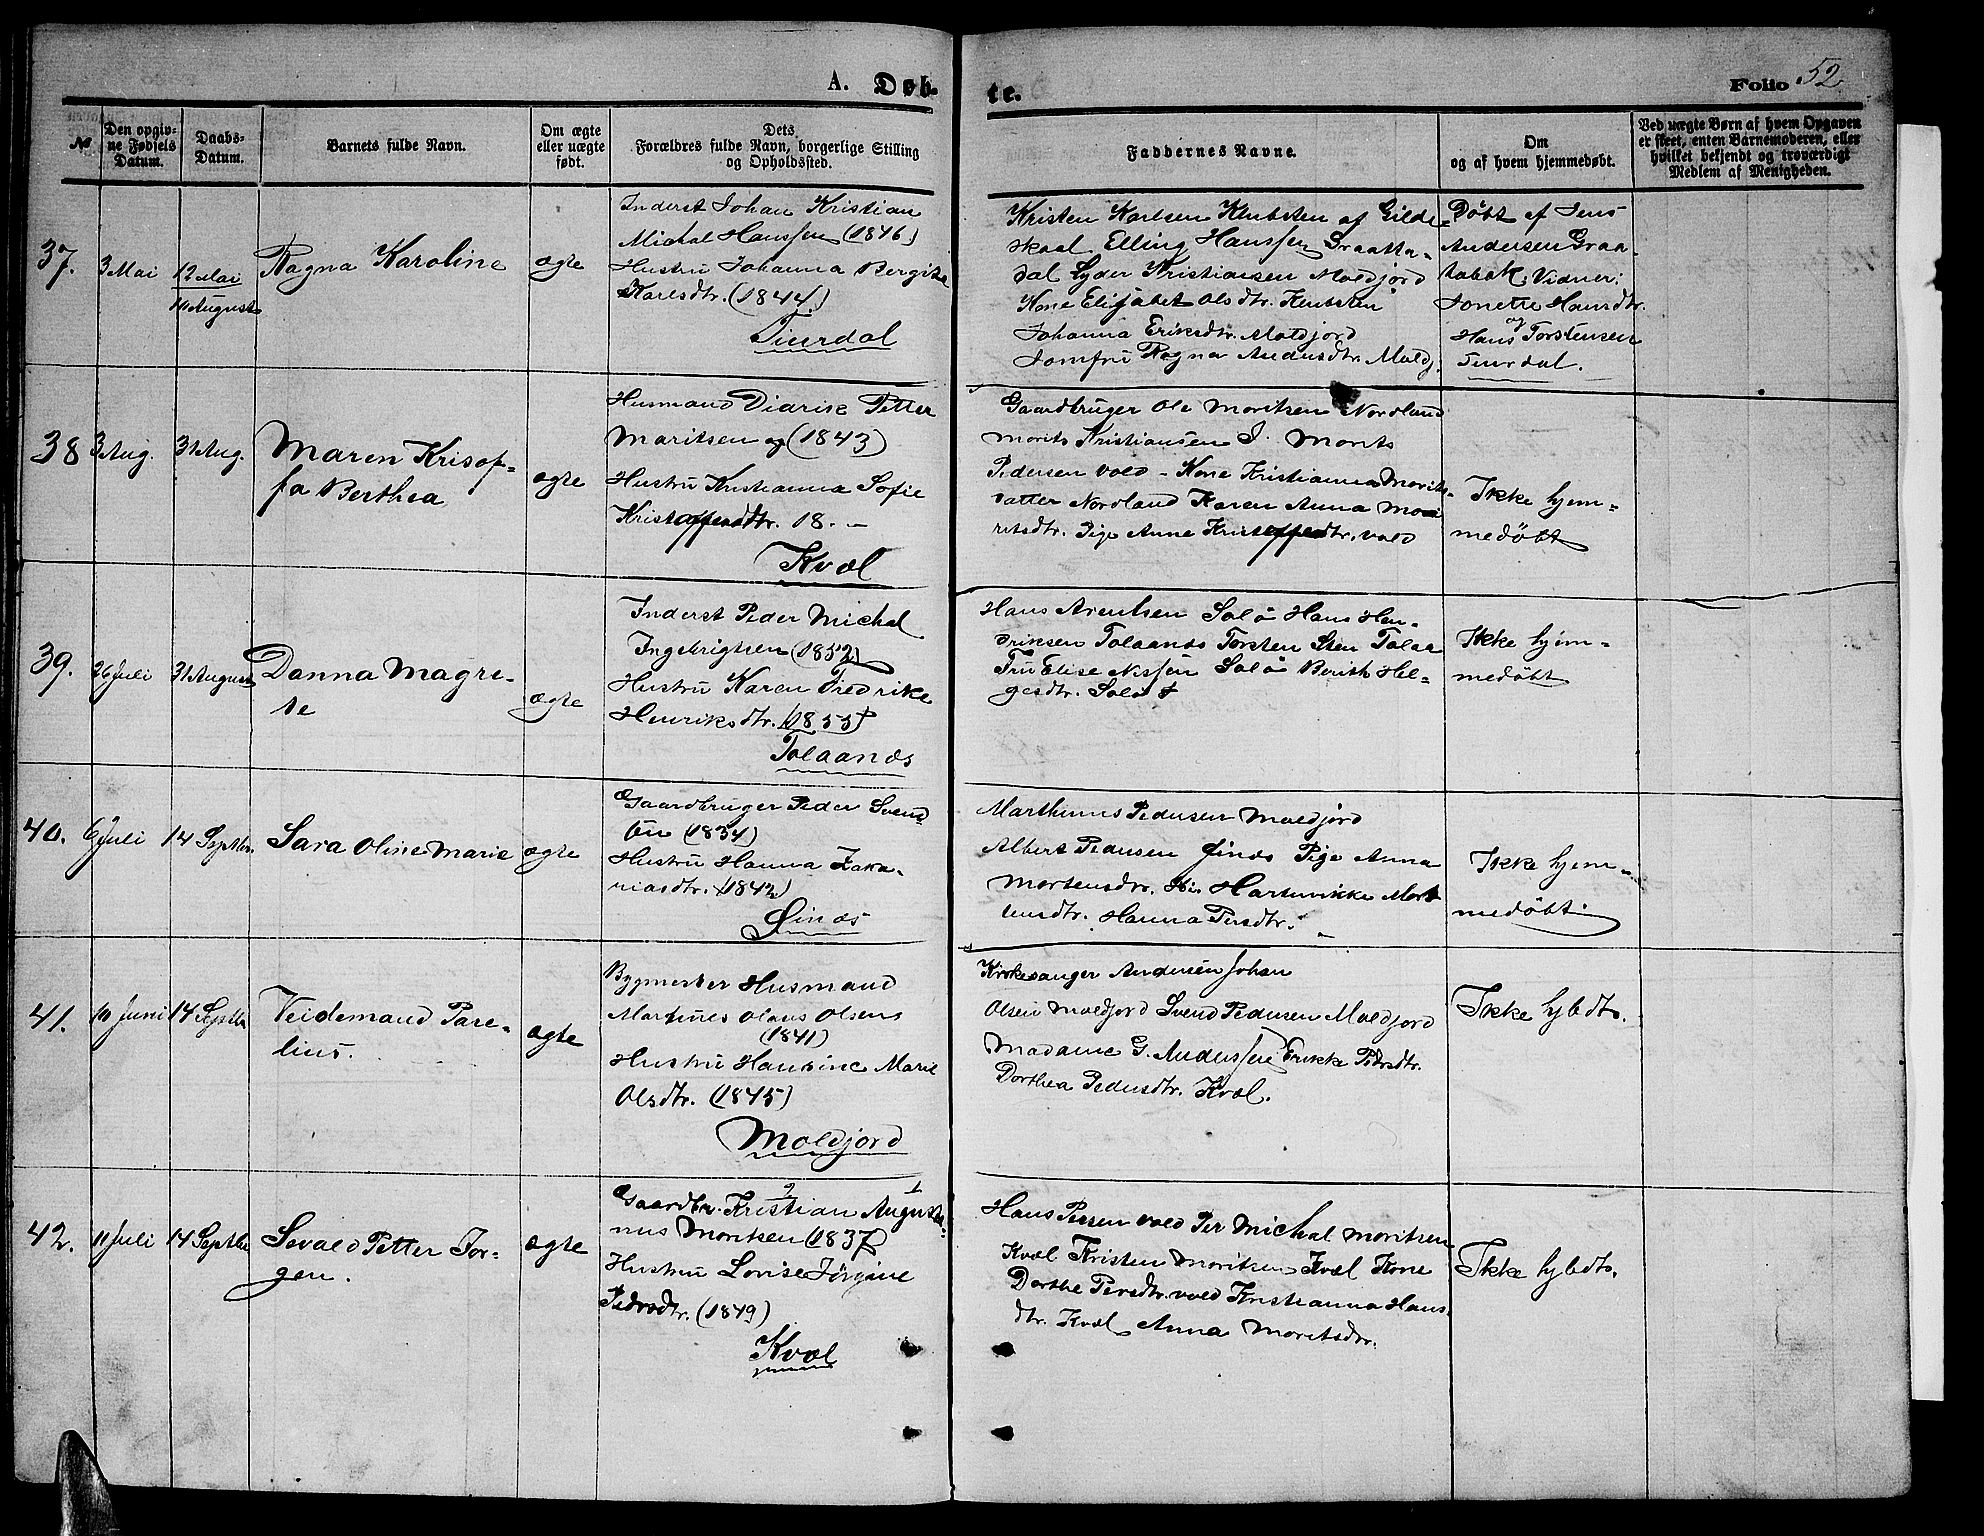 A. Døb-
te.
Folio 52
No
Den opgiv-
ne Fødsels
Datum.
Daabs-
Datum.
Barnets fulde Navn.
Om ægte
eller uægte
født.
Dets
Forældres fulde Navn, borgerlige Stilling
og Opholdssted.
Faddernes Navne.
Om
og af hvem hjemmedøbt.
Ved uægte Børn af hvem Opgaven
er skeet, enten Barnemoderen, eller
hvilket bekjendt og troværdigt
Medlem af Menigheden.
37.
3 Mai
12 Mai
August
Ragna Karoline
ægte
Inderst Johan Kristian
Michal Hanssen (1846)
Hustru Johanna Bergite
Karlsdtr. (1844)
Kristen Karlsen af Gilde
skaal Elling Hanssen Graatta-
dal Lyder Kristiansen Moldjord
Kone Elisabet Olsdtr.
Johanna Eriksdtr. Moldjord
Jomfru Ragna Andersdtr. Moldj.
Døbt af Jens
Andersen Graa-
Vidner:
Jonette Hansdtr.
og
Hans Torstensen
38
3 Aug.
31 Aug.
Maren Krisof-
fa Berthea
ægte
Husmand Diarik Petter
Maritsen og (1843)
Hustru Kristianna Sofie
Kristoffersdtr. 18. -
Kvæl
Gaardbruger Ole Moritsen Nordland
Morits Kristiansen S. Morits
Pedersen vold - Kone Kristianna Morits-
datter Nordland Karen Anna Mo
ritsdtr. Pige Anne Kristoffersdtr. vold
Ikke hjem-
medøbt
39.
26 Juli
31 August
Danna Magre-
te
ægte
Inderst Peder Michal
Ingebrigtsen (1852)
Hustru Karen Diedrike
Henriksdtr. (1855)
Tolaands
Hans Arentsen Solø Hans Hen-
driksen Tolaands Torsten Sten Tolaa
Fru Elise Nissen Solø Berith Hel-
gesdtr. Solø
Ikke hjem-
medøbt
40.
6 Juli
14 Septbr.
Sara Oline Marie
ægte
Gaardbruger Peder Svend
sen (1834)
Hustru Hanna Zaka-
riasdtr. (1842)
Sinds
Marthinus Pedersen Moldjord
Albert Pedersen Sinds Pige Anna
Mortensdtr. Hartvikke Mort
tensdtr. Hanna Persdtr.
Ikke hjem-
medøbt
41.
Juni
14 Septbr
Veidemand Pare-
lius.
ægte
Bygmester Husmand
Martines Olaus Olsens
(1841)
Hustru Hansine Marie
Olsdtr. (1845)
Moldjord
Kirkesanger Andersen Johan
Olsen Moldjord Svend Pedersen Moldjord
Madame G. Anderssen Erikke Pedrsdtr.
Dorthea Pedersdtr. Kvæl.
Ikke hjbdt.
42.
11 Juli
14 Septbr
Sevald Petter Jor-
gen.
ægte
2 1
Gaardbr. Kristian Augusti-
nus Moritsen (1837)
Hustru Lovise Jørgine
Pedrsdtr. (1849)
Kvæl
Hans Persen vold Per Michal Moritsen
Kvæl Kristen Moritsen Kvæl Kone
Dorthe Persdtr. vold Kristianna Hans
dtr. Kvæl Anna Moritsdtr.
Ikke hjbdt.